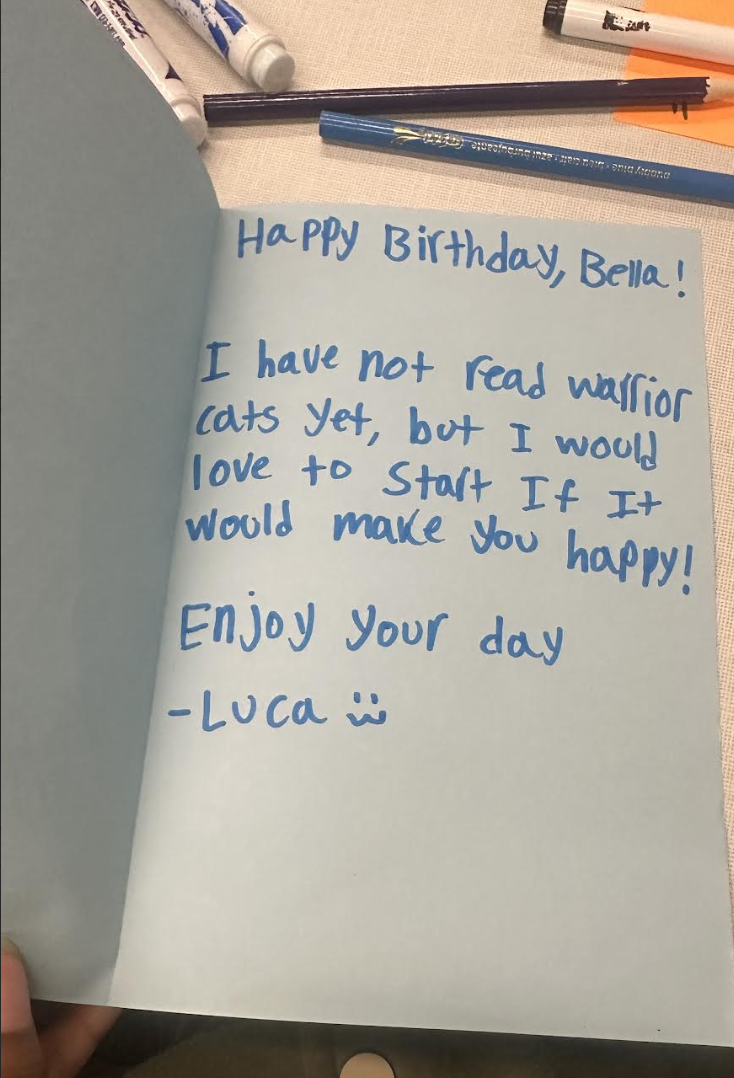 bunny blue • bleu clair • azul burbujeante
Happy Birthday, Bella!
I have not read warrior
cats yet, but I would
love to start If It
would make you happy!
Enjoy your day
-Luca